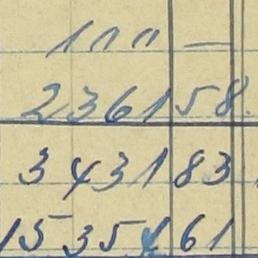 111 " —
2361 58.
3431 83
1535 61